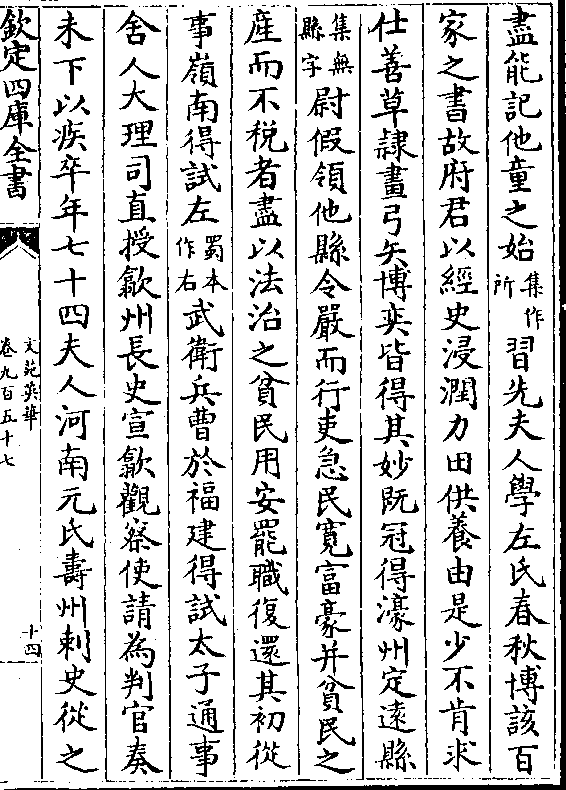 盡能記他童之始集作所習先夫人學左氏春秋博該百
家之書故府君以經史浸潤力田供養由是少不肯求
仕善草隸畫弓矢博奕皆得其妙既冠得濠州定遠縣
集無縣字尉假領他縣令嚴而行吏急民寛富豪并貧民之
産而不税者盡以法治之貧民用安罷職復還其初從
事嶺南得試左蜀本作右武衛兵曹於福建得試太子通事
舍人大理司直授歙州長史宣歙觀察使請為判官奏
未下以疾卒年七十四夫人河南元氏壽州刺史從之
欽定四庫全書
文苑英華
卷九百五十七
十四